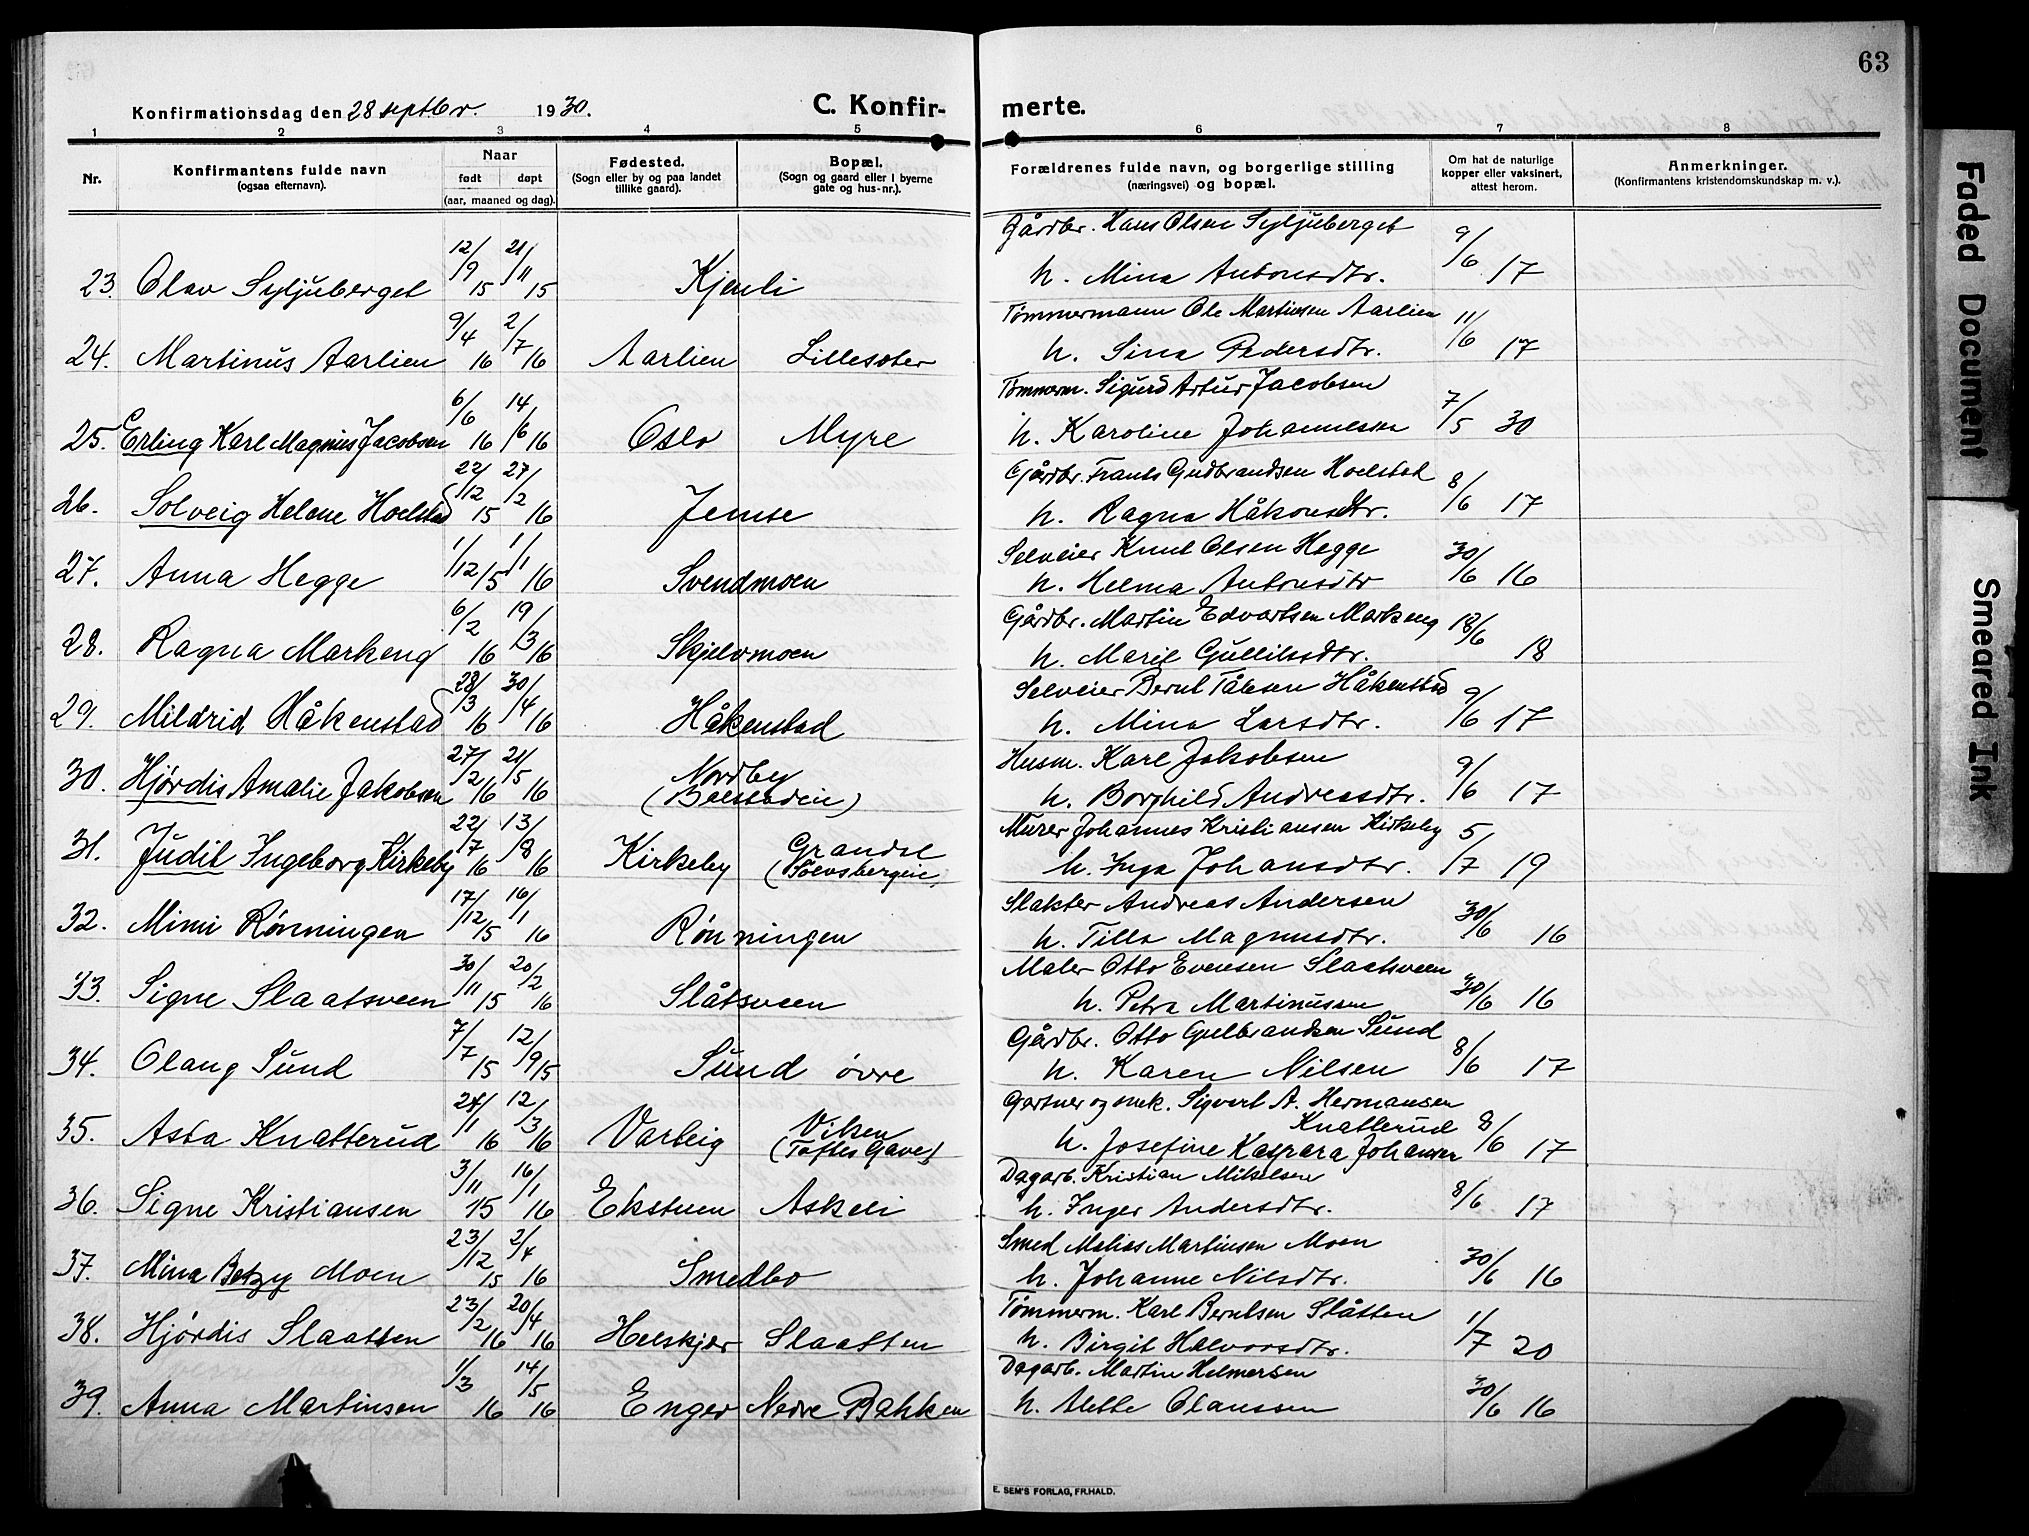 63
Konfirmationsdag den 28 septbr. 1930. C. Konfir- merte.
1 2 3 4 5 6 7 8
Nr. Konfirmantens fulde navn (ogsaa efternavn). Naar født døpt (aar, maaned og dag). Fødested. (Sogn eller by og paa landet tillike gaard). Bopæl. (Sogn og gaard eller i byerne gate og hus-nr.). Forældrenes fulde navn, og borgerlige stilling (næringsvei) og bopæl. Om hat de naturlige kopper eller vaksinert, attest herom. Anmerkninger. (Konfirmantens kristendomskundskap m. v.).
Gårdbr. Hans Olsen Syljuberget
23. Olav Syljuberget 12/9 15 21/11 15 Kjenli h. Mina Antonsdtr. 9/6 17
Tømmermann Ole Martinsen Aarlien
24. Martinus Aarlien 9/4 16 2/7 16 Aarlien Lilleseter h. Sina Pedersdtr. 11/6 17
Tømmerm. Sigurd Artur Jacobsen
25. Erling Karl Magnus Jacobsen 6/6 16 14/6 16 Oslo Myre h. Karoline Johannessen 7/5 30
Gårdbr. Frants Gudbrandsen Hoelstad
26. Solveig Helene Hoelstad 22/12 15 27/2 16 Jemse h. Ragna Håkonsdtr. 8/6 17
Selveier Knut Olsen Hegge
27. Anna Hegge 1/12 15 1/1 16 Svendmoen h. Helma Antonsdtr 30/6 16
Gårdbr. Martin Edvartsen Markeng
28. Ragna Markeng 6/2 16 19/3 16 Skjelvmoen h. Marie Gulliksdtr. 18/6 18
Selveier Bernt Tålesen Håkenstad
29. Mildrid Håkenstad 28/3 16 30/4 16 Håkenstad h. Mina Larsdtr. 9/6 17
Husm. Karl Jakobsen
30. Hjørdis Amalie Jakobsen 27/2 16 21/5 16 Nordby h. Borghild Andreasdtr. 9/6 17
Murer Johannes Kristiansen Kirkeby
31. Judit Ingeborg Kirkeby 22/7 16 13/8 16 Kirkeby h. Inga Johansdtr. 5/7 19
Slakter Andreas Andersen
32. Mimi Rønningen 17/12 15 16/1 16 Rønningen h. Tilla Magnusdtr. 30/6 16
Maler Otto Evensen Slaatsveen
33. Signe Slaatsveen 30/11 15 20/2 16 Slåtsveen h. Petra Martinussen 30/6 16
Gårdbr. Otto Gulbrandsen Sund
34. Olaug Sund 7/7 15 12/9 15 Sund øvre h. Karen Nilsen 8/6 17
Gartner og snek. Sigvert A. Hermansen Knatterud
35. Asta Knatterud 24/1 16 12/3 16 Varteig Viken (Toftes Gave) h. Josefine Kaspara Johansen 8/6 17
Dagarb. Kristian Mikelsen
36. Signe Kristiansen 3/11 15 16/1 16 Ekstuen Askeli h. Inger Andersdtr. 8/6 17
Smed Matias Martinsen Moen
37. Mina Betzy Moen 23/12 15 2/4 16 Smedbo h. Johanne Nilsdtr. 30/6 16
Tømmerm. Karl Berntsen Slåtten
38. Hjørdis Slaatten 23/2 16 20/4 16 Helskjer Slaatten h. Birgit Halvorsdtr. 1/7 20
Dagarb. Martin Helmersen
39. Anna Martinsen 1/3 16 14/5 16 Enger Nedre Bakken h. Alette Olaussen 30/6 16
E. SEM'S FORLAG, FR.HALD.
Faded Document
Smeared Ink